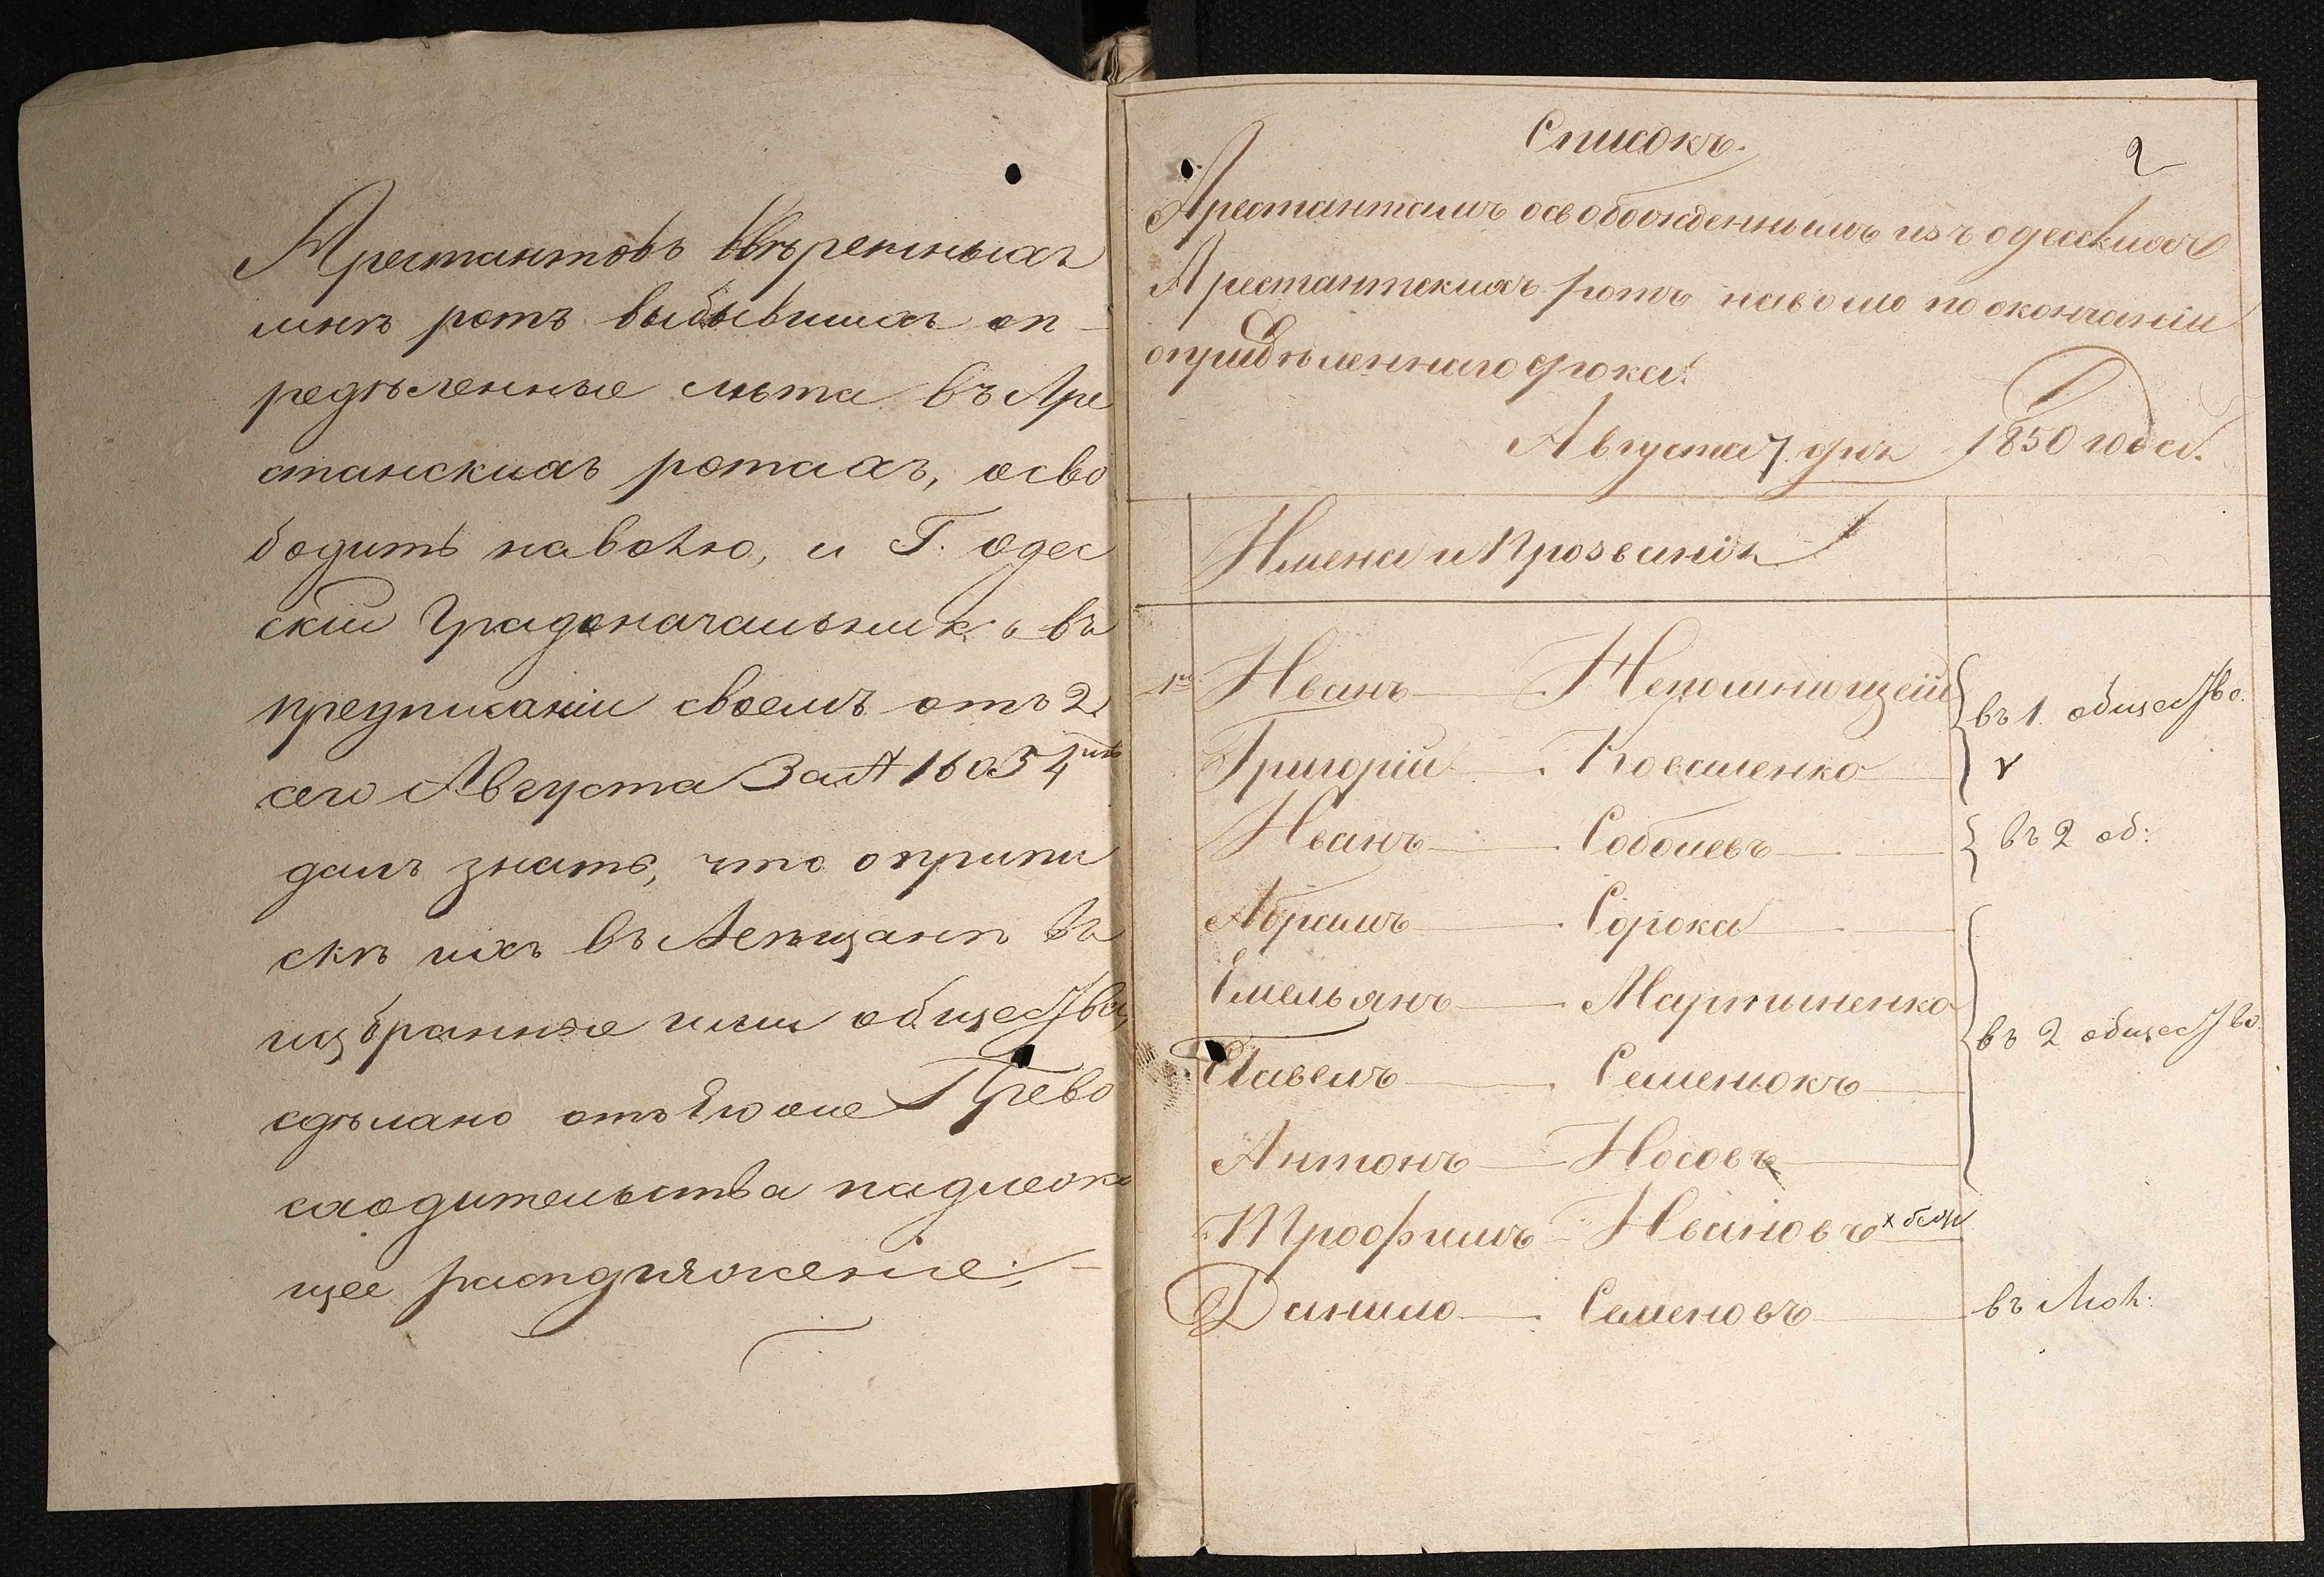 Арестантовъ Ввѣренныхъ
мнѣ ротъ выбывшихъ оп-
редѣленные лѣта въ Аре
станскихъ ротахъ, осво
бодить на волю, и Г. Одес
скій Градоначальникъ въ
предписаніи своемъ отъ 2
сего Августа За № 16054мъ
далъ знать, что о припи
скѣ ихъ въ Мещане въ
избранные ими общества,
сдѣлано отъ Его Прево
сходительства надлежа
щее распоряженіе.
2
Списокъ.
Арестантамъ освобожденнымъ изъ одесскихъ
Арестантскихъ ротъ на волю по окончаніи
опредѣленнаго срока.
Августа 7 дня 1850 года.
Имена и Прозванія
1. Иванъ Непомнющей въ 1. общество.
Григорій Коваленко
Иванъ Соболевъ въ 2 об:
Абрамъ Сорока
Емельянъ Мартыненко въ 2 общество.
Павелъ Семенюкъ
Антонъ Носовъ
Трофимъ Ивановъ
Данило Семеновъ